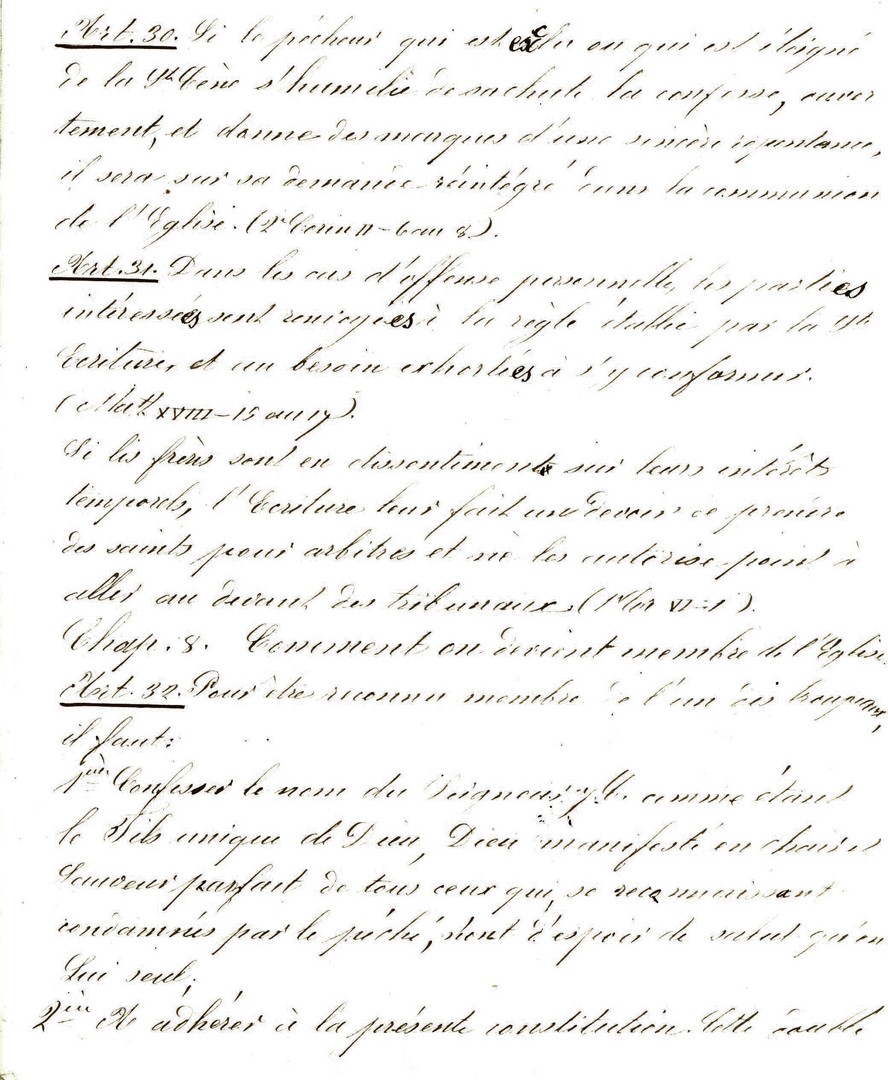 Art. 30. Si le pécheur qui est exclu ou qui est éloigné
de la Ste Cène s'humilie de sa chute la confesse, ouver
tement, et donne des marques d'une sincère repentance,
il sera sur sa demande réintégré dans la communion
de l'Eglise. (2e Corin II – 6 au 8).
Art. 31. Dans les cas d'offense personnelle, les parties
intéressées sont renvoyées à la règle établie par la Ste
Ecriture, et au besoin exhortées à s'y conformer.
(Matt XVIII – 15 au 17).
Si les frères sont en dissentiments sur leurs intérêts
temporels, l'Ecriture leur fait un devoir de prendre
des saints pour arbitres et ne les autorise point à
aller au devant des tribunaux. (1e Cor VI – 1).
Chap. 8. Comment on devient membre de l'Eglise.
Art. 32. Pour être reconnu membre de l'un des troupeaux,
il faut:
1èm Confesser le nom du Seigneur J. C. comme étant
le Fils unique de Dieu, Dieu manifesté en chair et
Sauveur parfait de tous ceux qui, se reconnaissant
condamnés par le péché, n'ont d'espoir de salut qu'en
Lui seul;
2èm A adhérer à la présente constitution. Cette double